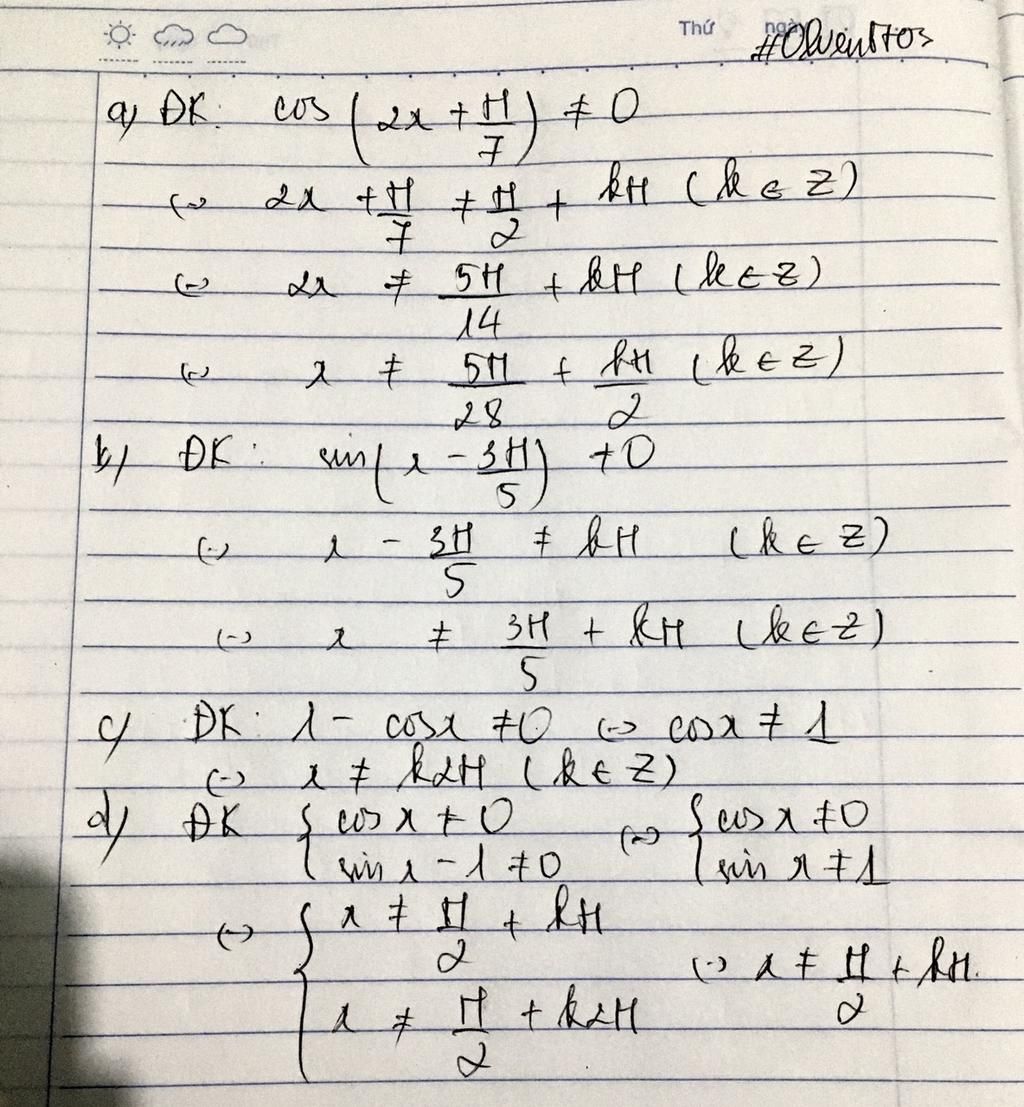 Thứ ngày
#Olwen8703
a) ĐK: cos(2x + π/7) ≠ 0
(=) 2x + π/7 ≠ π/2 + kπ (k ∈ Z)
(=) 2x ≠ 5π/14 + kπ (k ∈ Z)
(=) x ≠ 5π/28 + kπ/2 (k ∈ Z)
b) ĐK: sin(x - 3π/5) ≠ 0
(=) x - 3π/5 ≠ kπ (k ∈ Z)
(=) x ≠ 3π/5 + kπ (k ∈ Z)
c) ĐK: 1 - cosx ≠ 0 (=) cosx ≠ 1
(=) x ≠ k2π (k ∈ Z)
d) ĐK { cos x ≠ 0 (=) { cos x ≠ 0
sin x - 1 ≠ 0 sin x ≠ 1
(=) { x ≠ π/2 + kπ
(=) x ≠ π/2 + kπ.
x ≠ π/2 + k2π